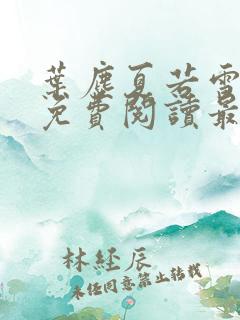 葉塵夏若雪
免費閱讀最
林經辰
未經同意禁止轉載